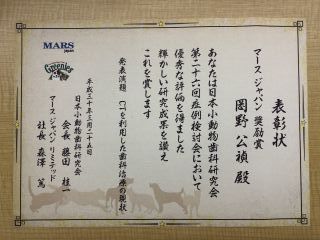 MARS
japan
Greenies
表彰状
マース ジャパン 奨励賞
岡野 公禎 殿
あなたは日本小動物歯科研究会
第二十六回症例検討会において
優秀な評価を得ました
輝かしい研究成果を讃え
これを賞します
発表演題 CTを利用した歯科治療の現状
平成三十年三月二十五日
日本小動物歯科研究会
会長 藤田 桂一
マース ジャパン リミテッド
社長 森澤 篤